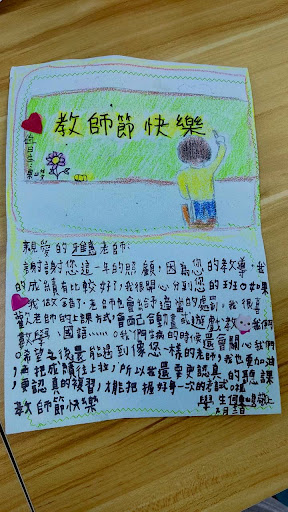 教師節快樂
親愛的 老師:
謝謝您這一年的照顧,因為您的教導,我
的成績有比較好了!我很開心分到您的班上。如果
我做錯了,老師也會給予適當的處罰,我很喜
老師的上課方式,會配合動畫或遊戲 教我們
數學、國語......。我們生病的時候還會關心我們
。希望之後還能遇到像您一樣的老師,我也要加油
,再把成績往上拉,所以我還要更認真的聽課
、更認真的複習,才能把握好每一次的考試。
教師節快樂
學生 敬上